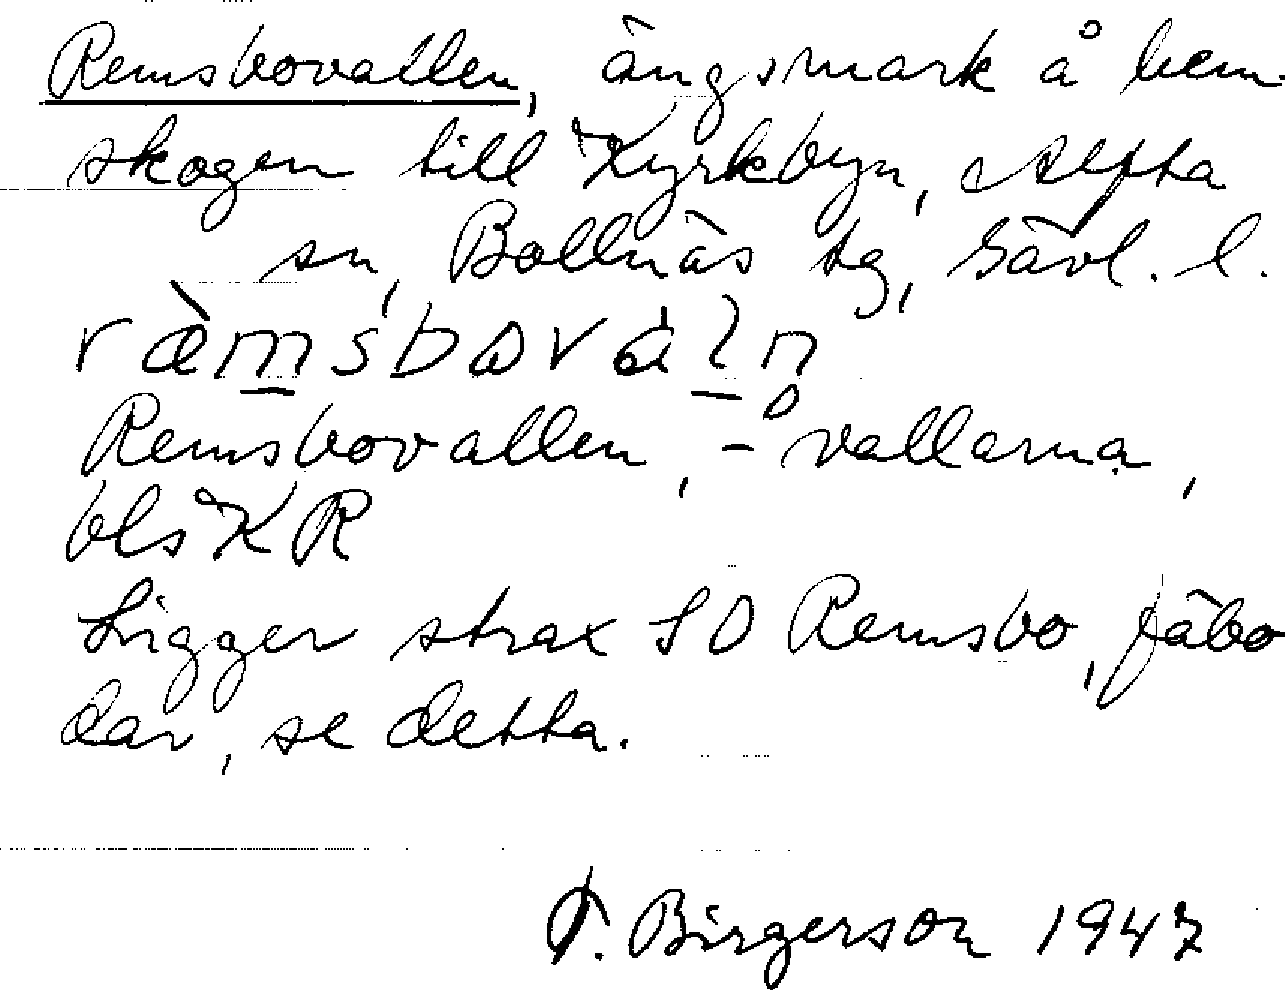 Remsbovallen, ängsmark å hem-
skogen till Kyrkbyn, Alfta
sn, Bollnäs tg, Gävl. l.
Remsbovallen, -vallarna,
bls KR
Ligger strax SO Remsbo, fäbo
dar, se detta.
Birgerson 1947